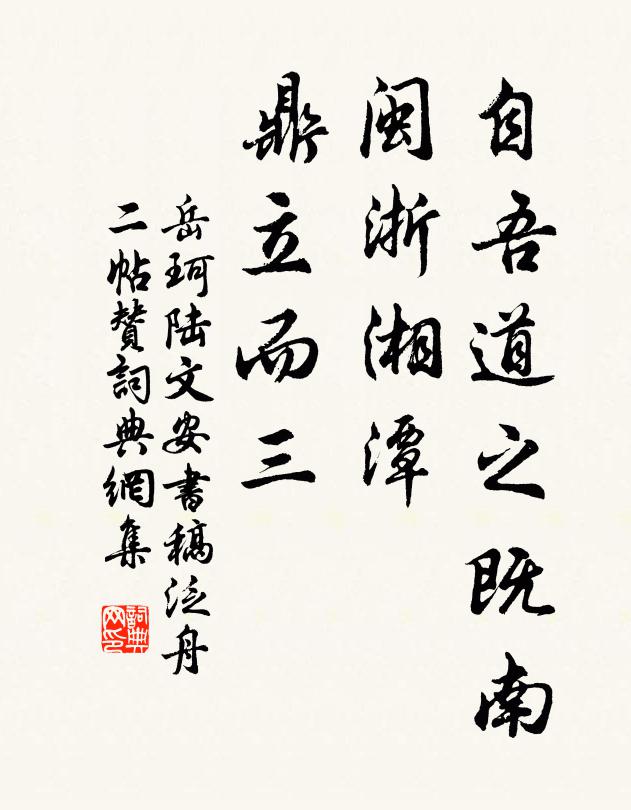 自吾道之既南
闽浙湘潭
鼎立而三
岳珂陆文安書稿泛舟
二帖赞詞典網集
詞典网印